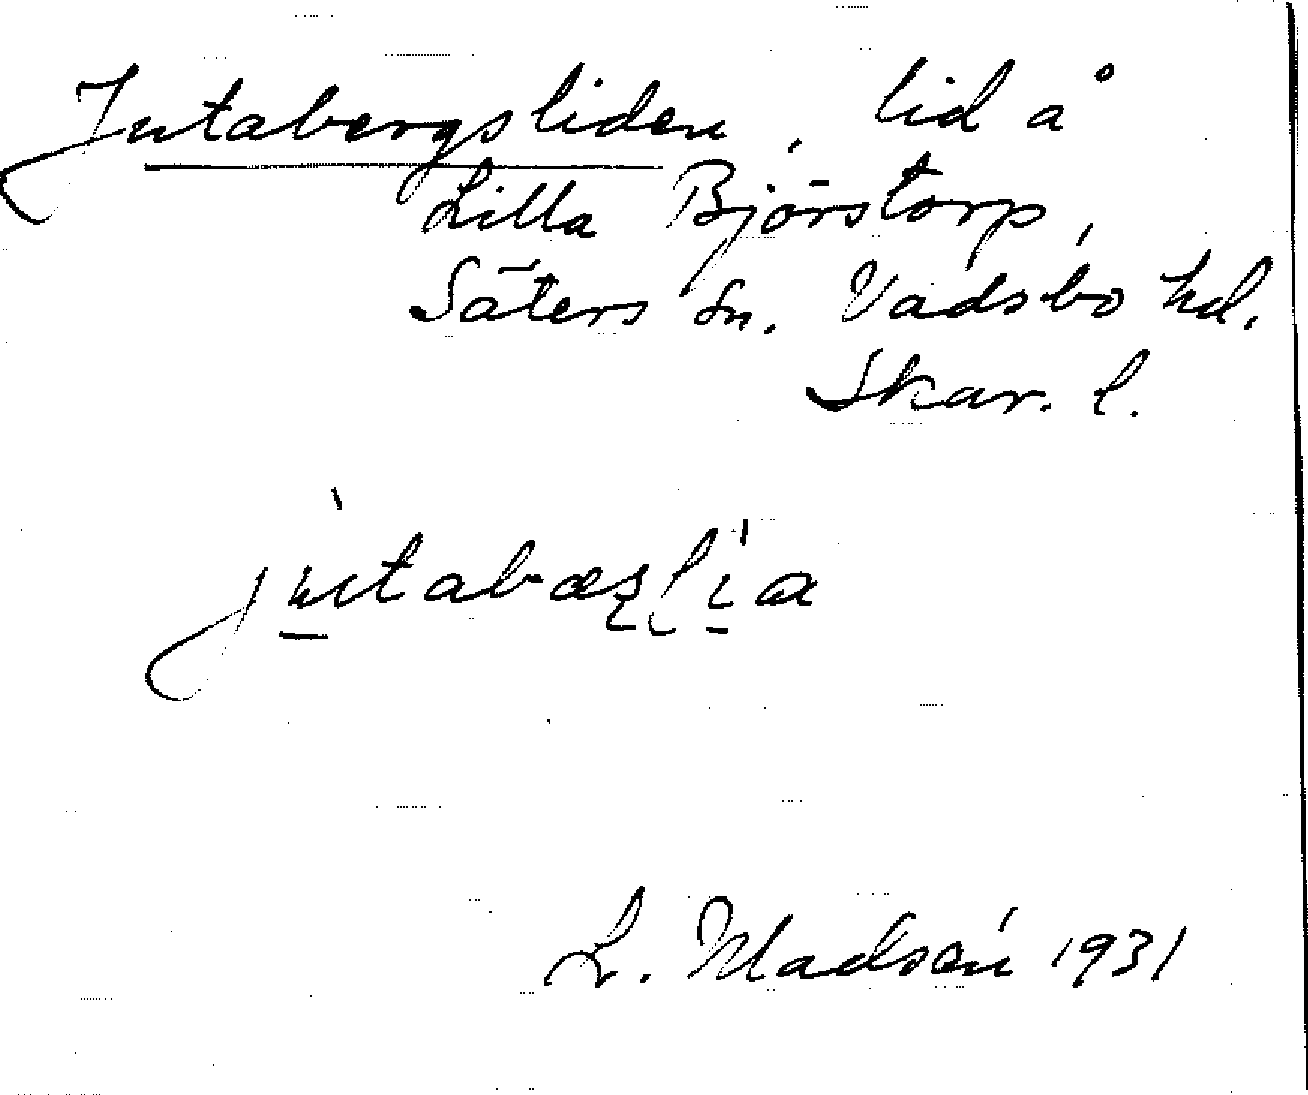 Jutabergsliden, lid å
Lilla Björstorp,
Säters sn. Vadsbo hd.
Skar. l.
jutabæslia
L. Madsén 1931